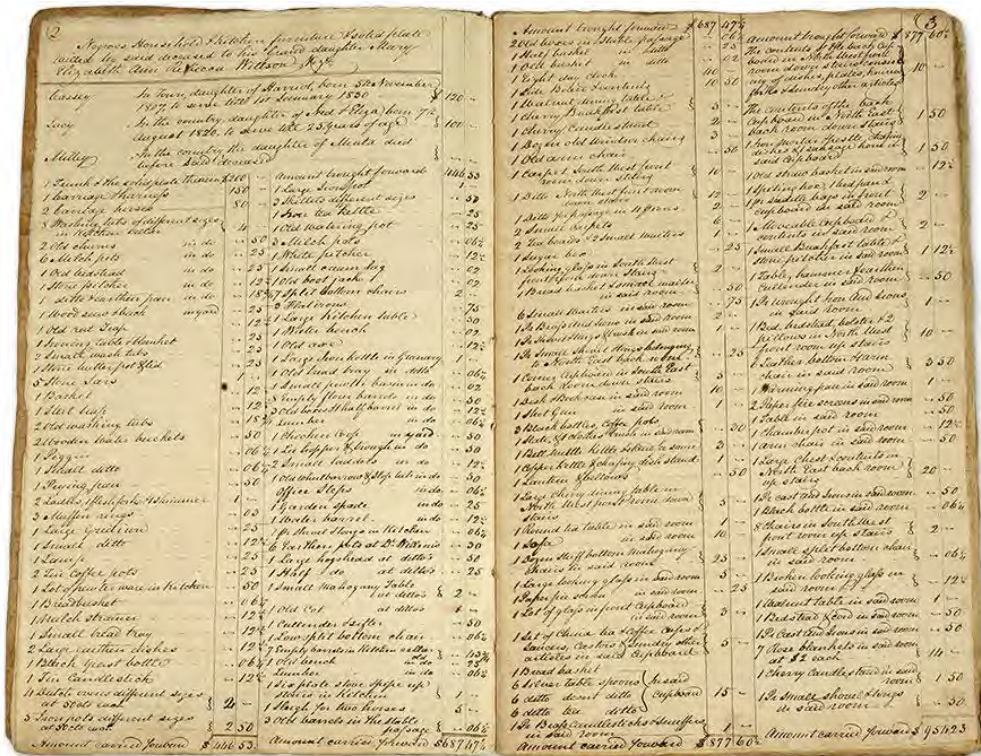 2
Negroes Household & kitchen furniture & solid plate
willed by said deceased to his Grand daughter Mary
Elizabeth Ann Rebecca Willson
Cassey In Town, daughter of Harriot, born 5th November
1807, to serve till 1st January 1830 $ 120 --
Lucy In the country, daughter of Ned & Eliza, born 7th
August 1820. to serve till 25 years of age 100 --
Milley In the country, the daughter of Minta died
before said deceased -- --
1 Trunk & the solid plate therein $ 200 --
1 Carriage & harness 150 --
2 Carriage horses 80 --
8 Washing tubs of different sizes
in kitchen cellar 4 --
2 Old churns in do -- 50
6 Milch pots in do -- 25
1 Old bedstead in do -- 25
1 Stone pitcher in do
1 ditto & earthen pan in do
1 Wood saw & buck in yard
1 Old rat Trap
1 Ironing table & blanket
2 Small wash tubs
1 Stone butter pot & lid
5 Stone Jars
1 Basket
1 Steel trap
2 Old washing tubs
2 Wooden water buckets
1 Piggin
1 Small ditto
1 Frying pan
2 Ladles, flesh fork & skimmer
3 Muffin rings
1 Large Gridiron
1 Small ditto
1 Lamp
2 Tin Coffee pots
1 Lot of pewter ware in kitchen
1 Breadbasket
1 Milch strainer
1 Small bread tray
2 Large earthen dishes
1 Black quart bottle
1 Tin Candlestick
4 Dutch ovens different sizes
at 50 cts each 2 --
5 Iron pots different sizes
at 50 cts each 2 50
Amount carried forward $ 646 53
Amount brought forward $ 646 53
1 Large Iron pot 1 --
3 Skillets different sizes -- 50
1 Iron tea kettle -- 25
1 Old watering pot -- 25
3 Milch pots -- 06¼
1 White pitcher -- 12½
1 Small cream Jug -- 02
1 Old boot jack -- 02
7 Split bottom chairs 2 --
3 Flat irons -- 75
1 Large kitchen table -- 50
1 Water bench -- 02
1 Old axe -- 12½
1 Large Iron kettle in Granary 1 --
1 Old bread tray in ditto -- 06¼
1 Small pewter basin in do -- 02
3 Empty flour barrels in do -- 50
3 Old boxes & half barrel in do -- 12½
Lumber in do -- 06¼
1 Chicken Coop in yard -- 50
in do -- 50
2 Small ladders in do -- 12½
1 Old wheelbarrow in do -- 50
Office Steps in do -- 06¼
1 Garden spade in do -- 25
1 Water barrel in do -- 12½
1 pr Shovel & tongs in kitchen -- 06¼
6 Earthen pots at Dr Willson's -- 50
1 Large hogshead at ditto's -- 50
1 Half do at ditto's -- 25
1 Small Mahogany Table
at ditto's 2 --
1 Old Cot at ditto's
1 Cullender & sifter -- 50
1 Low split bottom chair -- 06¼
7 Empty barrels in Kitchen cellar
1 Old bench in do
Lumber in do
1 Six plate stove & pipe up
stairs in kitchen
1 Sleigh for two horses 5 --
3 Old barrels in the stable
passage -- 06¼
Amount carried forward $ 687 47½
Amount brought forward $ 687 47½
2 Old boxes in stable passage -- 06¼
1 Half bushel in ditto -- 25
1 Old basket in ditto -- 02
1 Eight day clock 40 --
1 Side Board & 10 50
1 Walnut dining table 3 --
1 Cherry Breakfast table 2 --
1 Cherry Candlestand
1 Dozen old Windsor chairs 3 --
1 Old arm chair -- 50
1 Carpet South West front
room down stairs 10 --
1 Ditto North West front room
down stairs 12 --
1 Ditto for passage in 4 pieces 2 --
2 Small carpets
2 Tea boards & 2 small waiters
1 Sugar box -- 25
1 Looking glass in South West
front room down stairs 2 --
1 Bread basket & small waiter
in said room -- 50
6 Small waiters in said room -- 75
1 Pr Brass And irons in said room 2 --
1 Pr Shovel & tongs & brush in said room 1 --
1 Pr Small shovel & tongs belonging
to North East back room -- 25
1 Corner Cupboard in South East
back room down stairs 5 --
1 Desk & Bookcase in said room 10 --
1 Shot Gun in said room 1 --
3 Black bottles, Coffee pots
1 Slate & clothes brush in said room
1 Bell metal kettle 3 --
1 Copper kettle & chafing dish & stand 1 --
1 Lantern & bellows -- 50
1 Large cherry dining table in
North West front room down
stairs 5 --
1 Round tea table in said room 1 --
1 Sofa in said room 10 --
1 Dozen Stuff bottom Mahogany
chairs in said room
1 Large looking glass in said room 5 --
1 Paper fire screen in said room -- 25
1 Lot of glass in front Cupboard
in said room 3 --
1 Set of China tea & Coffee Cups &
Saucers, Castors & Sundry other
articles in said Cupboard 5 --
1 Bread basket
6 Silver table spoons In said
6 ditto desert ditto Cupboard 15 --
6 ditto tea ditto
1 Pr Brass Candlesticks & snuffers
in said room 1 --
Amount carried forward $ 877 60½
3
Amount brought forward $ 877 60½
The contents of the back Cup-
board in North West front
room down stairs consist-
ing of dishes, plates, knives
forks & sundry other articles 10 --
The contents of the back
Cupboard in North East
back room down stairs 1 50
1 Iron mortar & pestle, chafing
dishes & sausage horn in
said cupboard 1 50
1 Old straw basket in said room -- 12½
1 bed pan &
1 pr saddle bags in front
cupboard in said room 2 --
1 Moveable Cupboard &
contents in said room 2 --
1 Small Breakfast table &
stone pitcher in said room 1 12½
1 Table, hammer & earthen
Cullender in said room -- 50
1 Pr wrought Iron And Irons
in said Room 1 --
1 Bed, bedstead, bolster & 2
pillows in North West
front room up stairs 10 --
6 Leather bottom & arm
chair in said room 3 50
1 Warming pan in said room 1 --
2 Paper fire screens in said room -- 50
1 Table in said room -- 50
1 Chamber pot in said room -- 12½
1 arm chair in said room -- 50
1 Large Chest & contents in
North East back room
up stairs 20 --
1 Pr cast And Irons in said room -- 50
1 Black bottle in said room -- 06¼
8 Chairs in South West
front room up stairs 2 --
1 Small split bottom chair
in said room -- 06¼
1 Broken looking glass in
said room -- 12½
1 Walnut table in said room 1 --
1 Bedstead & cord in said room -- 50
1 Pr Cast And Irons in said room -- 50
7 Rose blankets in said room
at $2 each 14 --
1 Cherry candle stand in said
room 1 50
1 Pr Small shovel & tongs
in said room -- 50
Amount carried forward $ 954 23